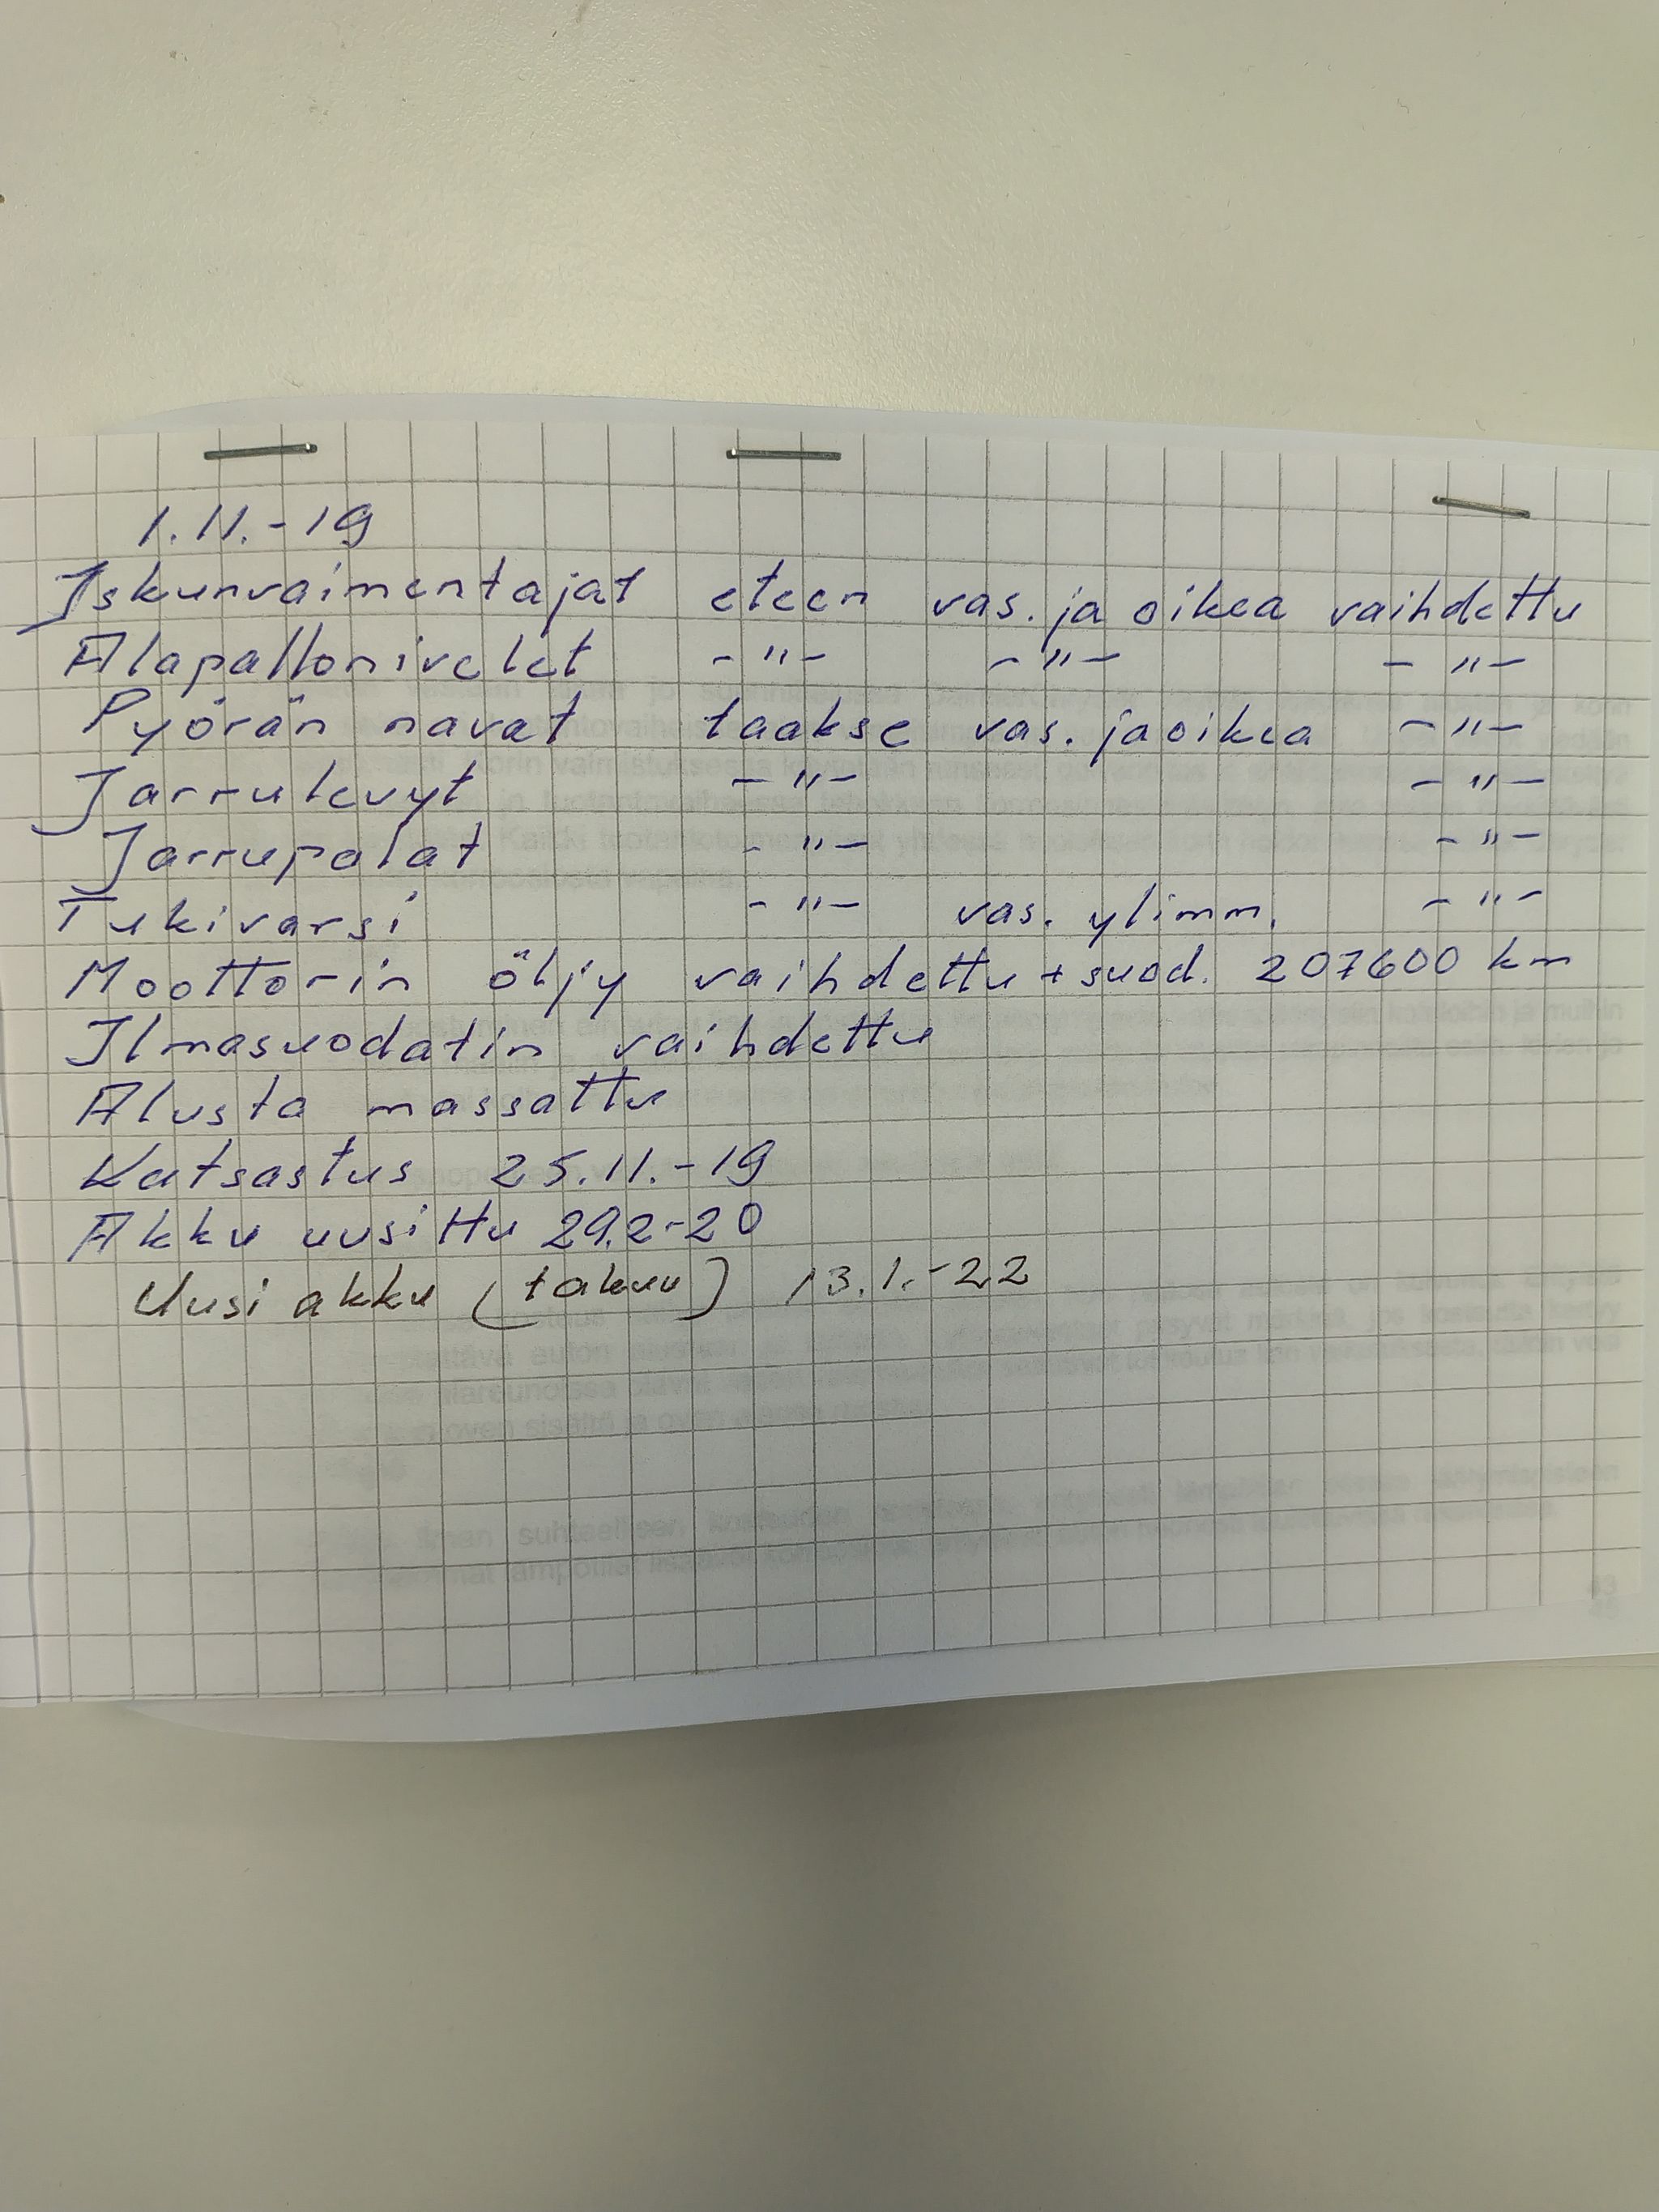 1.11.-19
Iskunvaimentajat eteen vas. ja oikea vaihdettu
Alapallonivelet -"- -"- -"-
Pyörän navat taakse vas. ja oikea -"-
Jarrulevyt -"- -"-
Jarrupalat -"- -"-
Tukivarsi -"- vas. ylimm. -"-
Moottorin öljy vaihdettu + suod. 207600 km
Ilmasuodatin vaihdettu
Alusta massattu
Katsastus 25.11.-19
Akku uusittu 29.2-20
Uusi akku (takuu) 13.1.-22